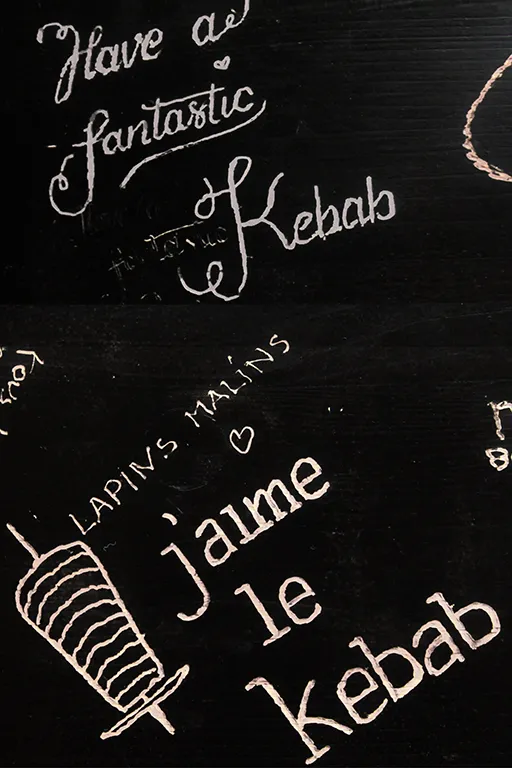 Have a
fantastic
Kebab
LAPINS MALINS
j'aime
le
kebab